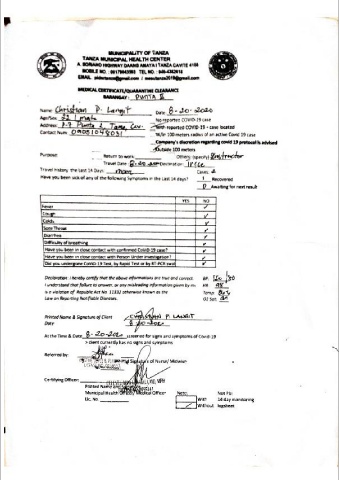 MUNICIPALITY OF TANZA
TANZA MUNICIPAL HEALTH CENTER
A. SORIANO HIGHWAY DAANG AMAYA I TANZA CAVITE 4108
MEDICAL CERTIFICATE/QUARANTINE CLEARANCE
BARANGAY: PUNTA II
Name: Christian P. Langit Date: 8-20-2020
Age/Sex: 22 / male No reported COVID-19 case
Address: Punta 2, Tanza, Cav. With reported COVID-19 case located
Contact Num: 09081048031 W/in 100 meters radius of an active Covid 19 case
Company's discretion regarding covid 19 protocol is advised
Outside 100 meters
Purpose: Return to work Others: (specify) Instructor
Travel Date: 8-20-2020 Destination:
Travel history, the last 14 Days Cases: 2
Have you been sick of any of the following Symptoms in the Last 14 days? 1 Recovered
0 Awaiting for next result
YES NO
Fever ✓
Cough ✓
Colds ✓
Sore Throat ✓
Diarrhea ✓
Difficulty of breathing ✓
Have you been in close contact with confirmed Covid 19 case? ✓
Have you been in close contact with Person Under Investigation? ✓
Did you undergone Covid 19 Test, by Rapid Test or by RT-PCR swab ✓
Declaration: I hereby certify that the above informations are true and correct. BP:
I understand that failure to answer, or any misleading information given by me HR
is a violation of Republic Act No 11332 otherwise known as the Temp
Law on Reporting Notifiable Diseases. O2 Sat
Printed Name & Signature of Client CHRISTIAN P. LANGIT
Date 8-20-2020
At the Time & Date 8-20-2020 screened for signs and symptoms of Covid-19
client currently has no signs and symptoms
Referred by:
Printed Name and Signature of Nurse/ Midwife
Certifying Officer:
Printed Name
Municipal Health Officer/ Medical Officer Note: Not Fit:
Lic. No With 14-day monitoring
✓ Without logsheet